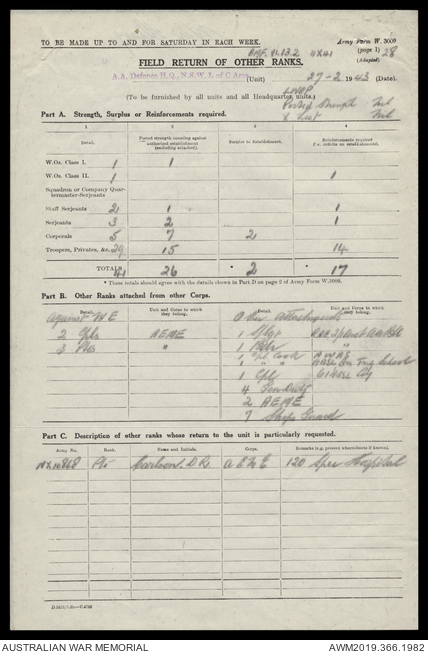 TO BE MADE UP TO AND FOR SATURDAY IN EACH WEEK.
Army Form W. 3009
(page 1) 28
(Adapted)
FIELD RETURN OF OTHER RANKS.
A.A. Defence H.Q., N.S.W. L of C Area (Unit) 27-2 1943 (Date).
(To be furnished by all units and all Headquarter units.)
Posted Strength Nil
X List Nil
Part A. Strength, Surplus or Reinforcements required.
1 2 3 4
Detail. Posted strength counting against authorized establishment (excluding attached). Surplus to Establishment. Reinforcements required (i.e. deficits on establishment).
W.Os. Class I. 1 1
W.Os. Class II. 1 1
Squadron or Company Quar-
termaster-Serjeants
Staff Serjeants 2 1 1
Serjeants 3 2 1
Corporals 5 7 2
Troopers, Privates, &c. 29 15 14
TOTALS 41 26 * 2 * 17
* These totals should agree with the details shown in Part D on page 2 of Army Form W.3009.
Part B. Other Ranks attached from other Corps.
Detail. Unit and Corps to which they belong. Detail. Unit and Corps to which they belong.
Against W E Other Attachments
2 Cpls AEME 1
3 Ptes " 1
1 Cpl Cook
1
1 Cpl
4 Gen Duty
2 AEME
7 Guard
Part C. Description of other ranks whose return to the unit is particularly requested.
Army No. Rank. Name and Initials. Corps. Remarks (e.g. present whereabouts if known).
Pte Carlson D.R. A E M E 120 Spec Hospital
AUSTRALIAN WAR MEMORIAL AWM2019.366.1982